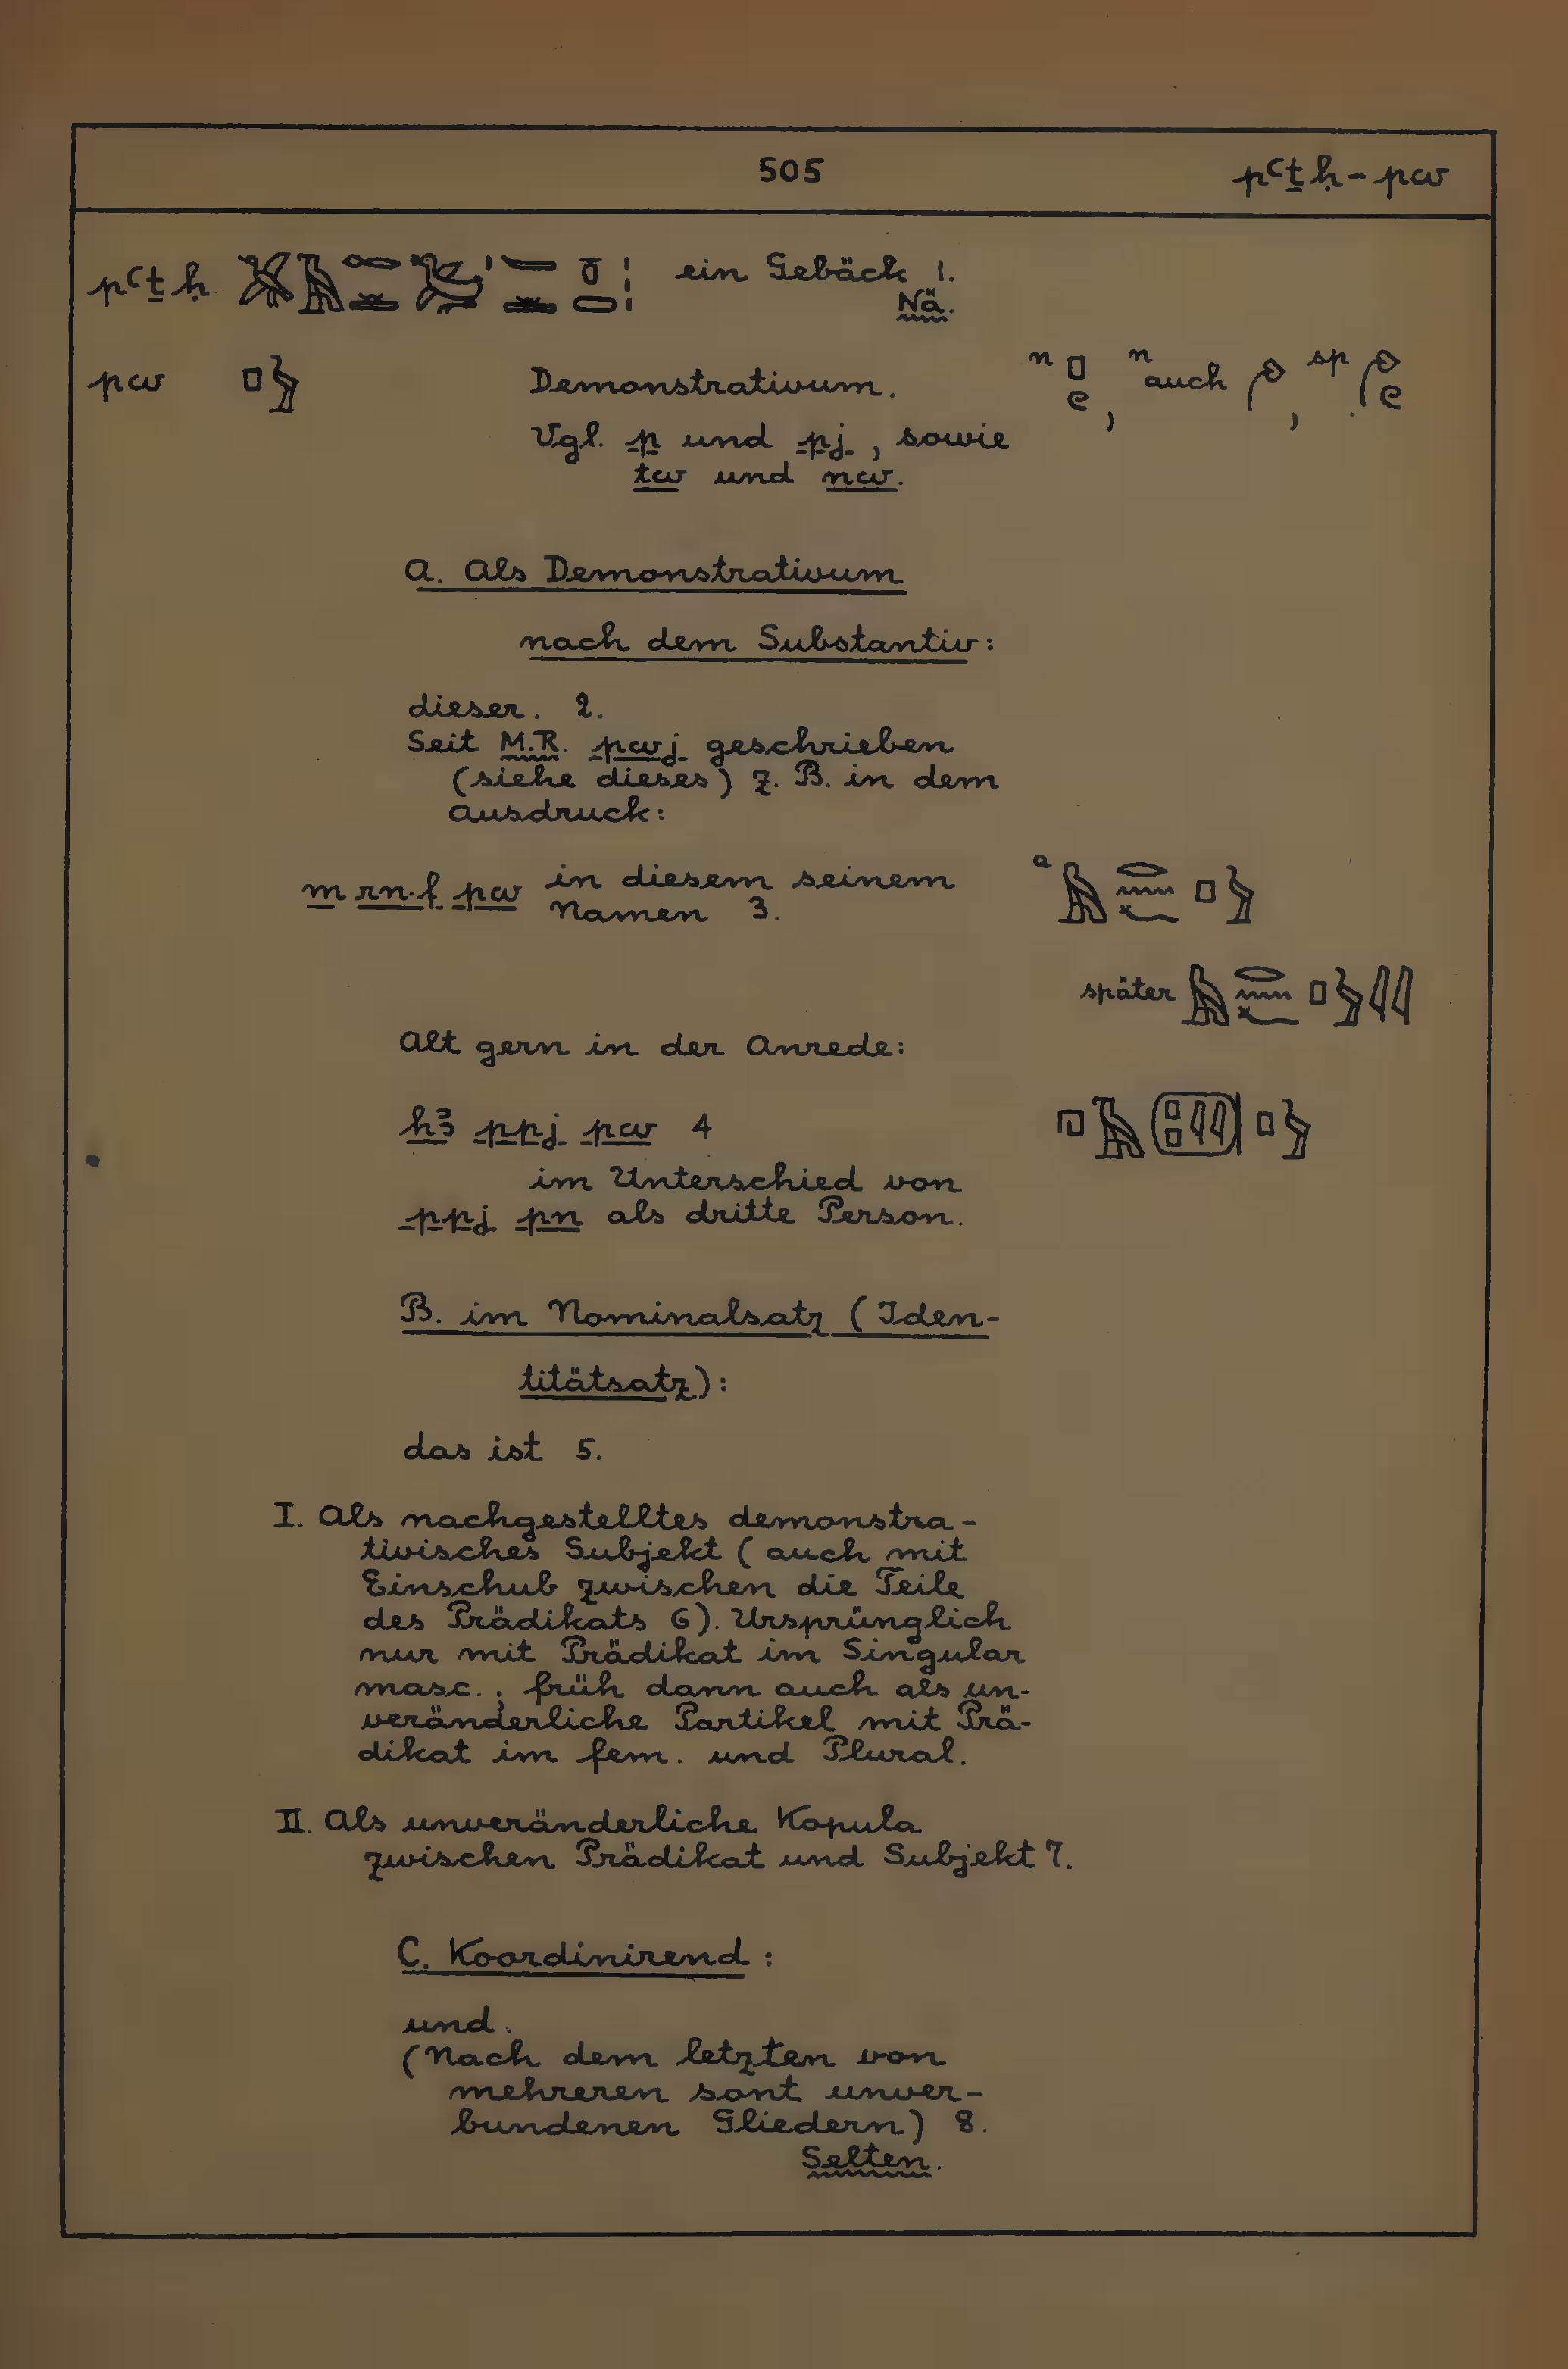 505
pꜥṯḥ - pw
pꜥṯḥ ein Gebäck 1.
Nä.
pw 𓊪𓅱 Demonstrativum. n , n auch , sp
Vgl. p und pj, sowie
tw und nw.
A. Als Demonstrativum
nach dem Substantiv:
dieser. 2.
Seit M.R. pwj geschrieben
(siehe dieses) z. B. in dem
Ausdruck:
m rn.f pw in diesem seinem
Namen 3.
a
später
Alt gern in der Anrede:
hꜣ ppj pw 4
im Unterschied von
ppj pn als dritte Person.
B. im Nominalsatz (Iden-
titätsatz):
das ist 5.
I. Als nachgestelltes demonstra-
tivisches Subjekt (auch mit
Einschub zwischen die Teile
des Prädikats 6). Ursprünglich
nur mit Prädikat im Singular
masc.; früh dann auch als un-
veränderliche Partikel mit Prä-
dikat im fem. und Plural.
II. Als unveränderliche Kopula
zwischen Prädikat und Subjekt 7.
C. Koordinirend:
und.
(Nach dem letzten von
mehreren sont unver-
bundenen Gliedern) 8.
Selten.